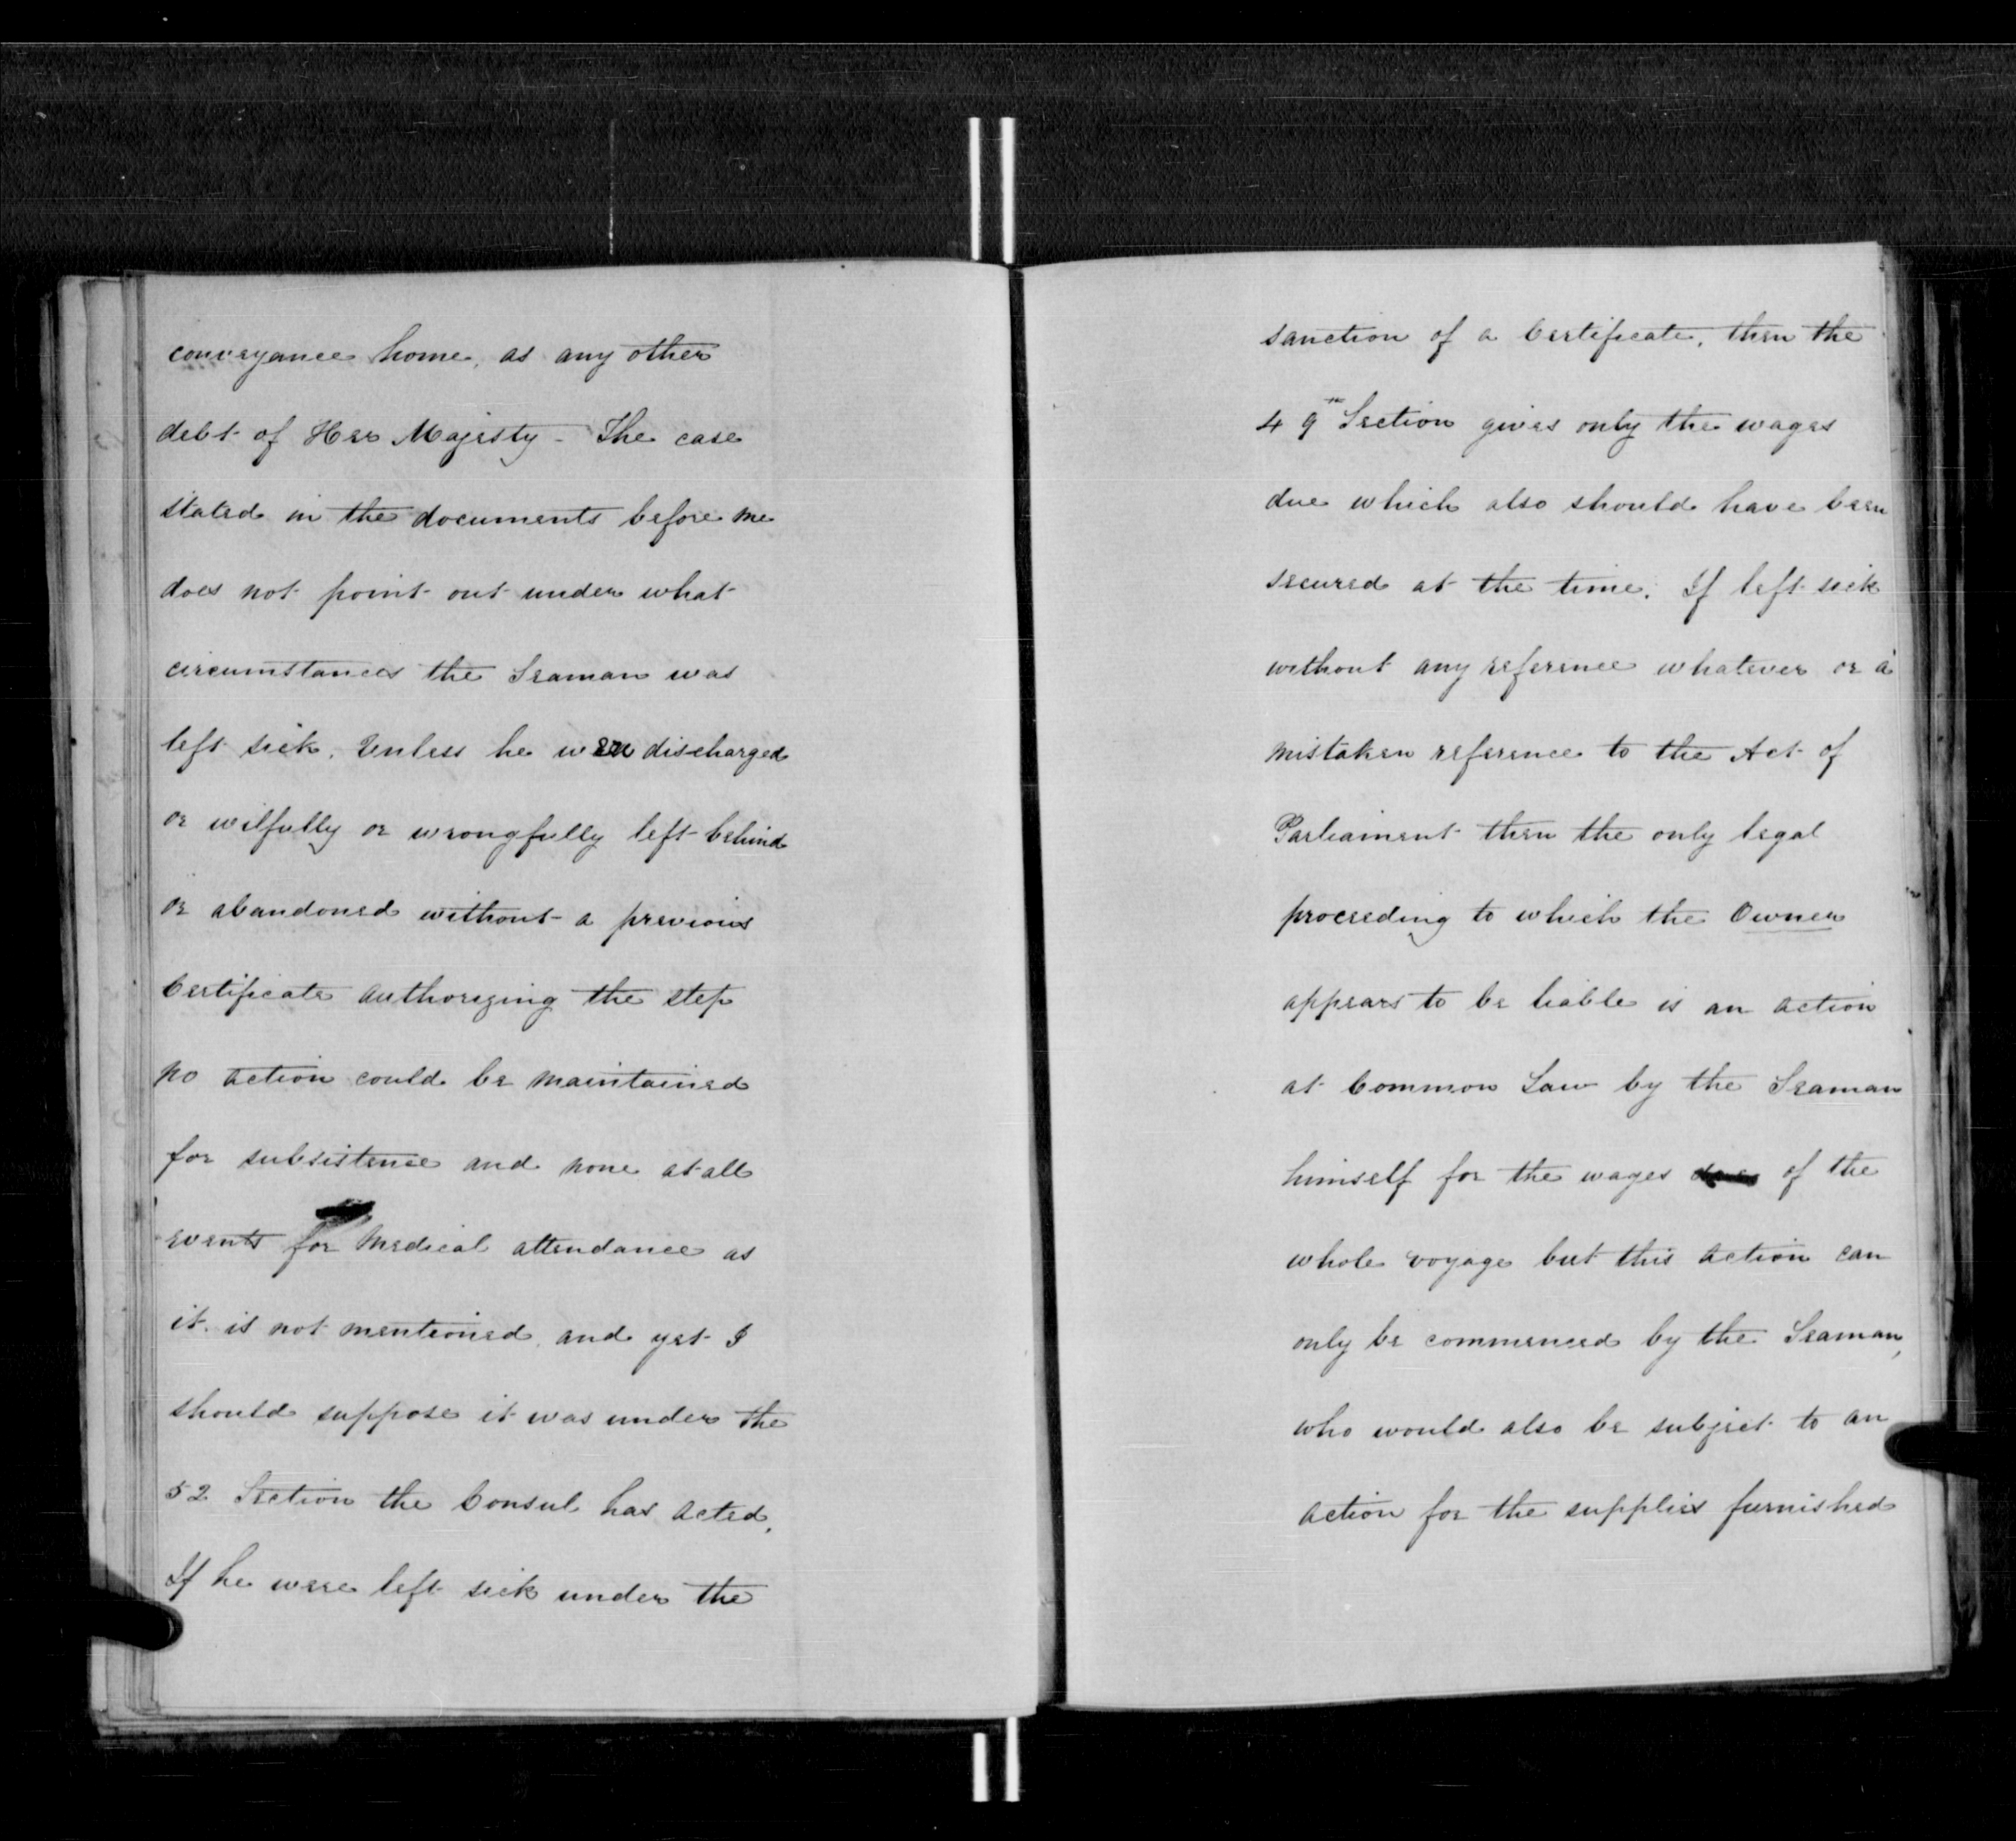 conveyance home, as any other
debt of Her Majesty - The case
stated in the documents before me
does not point out under what
circumstances the Seaman was
left sick. Unless he were discharged
or wilfully or wrongfully left behind
or abandoned without a previous
Certificate authorizing the step
no action could be maintained
for subsistence and none at all
events for Medical attendance as
it is not mentioned and yet I
should suppose it was under the
52 Section the Consul has acted.
If he were left sick under the
sanction of a Certificate, then the
49th Section gives only the wages
due which also should have been
secured at the time. If left sick
without any reference whatever or a
mistaken reference to the Act of
Parliament then the only legal
proceeding to which the Owner
appears to be liable is an action
at Common Law by the Seaman
himself for the wages of the
whole voyage but this action can
only be commenced by the Seaman,
who would also be subject to an
action for the supplies furnished